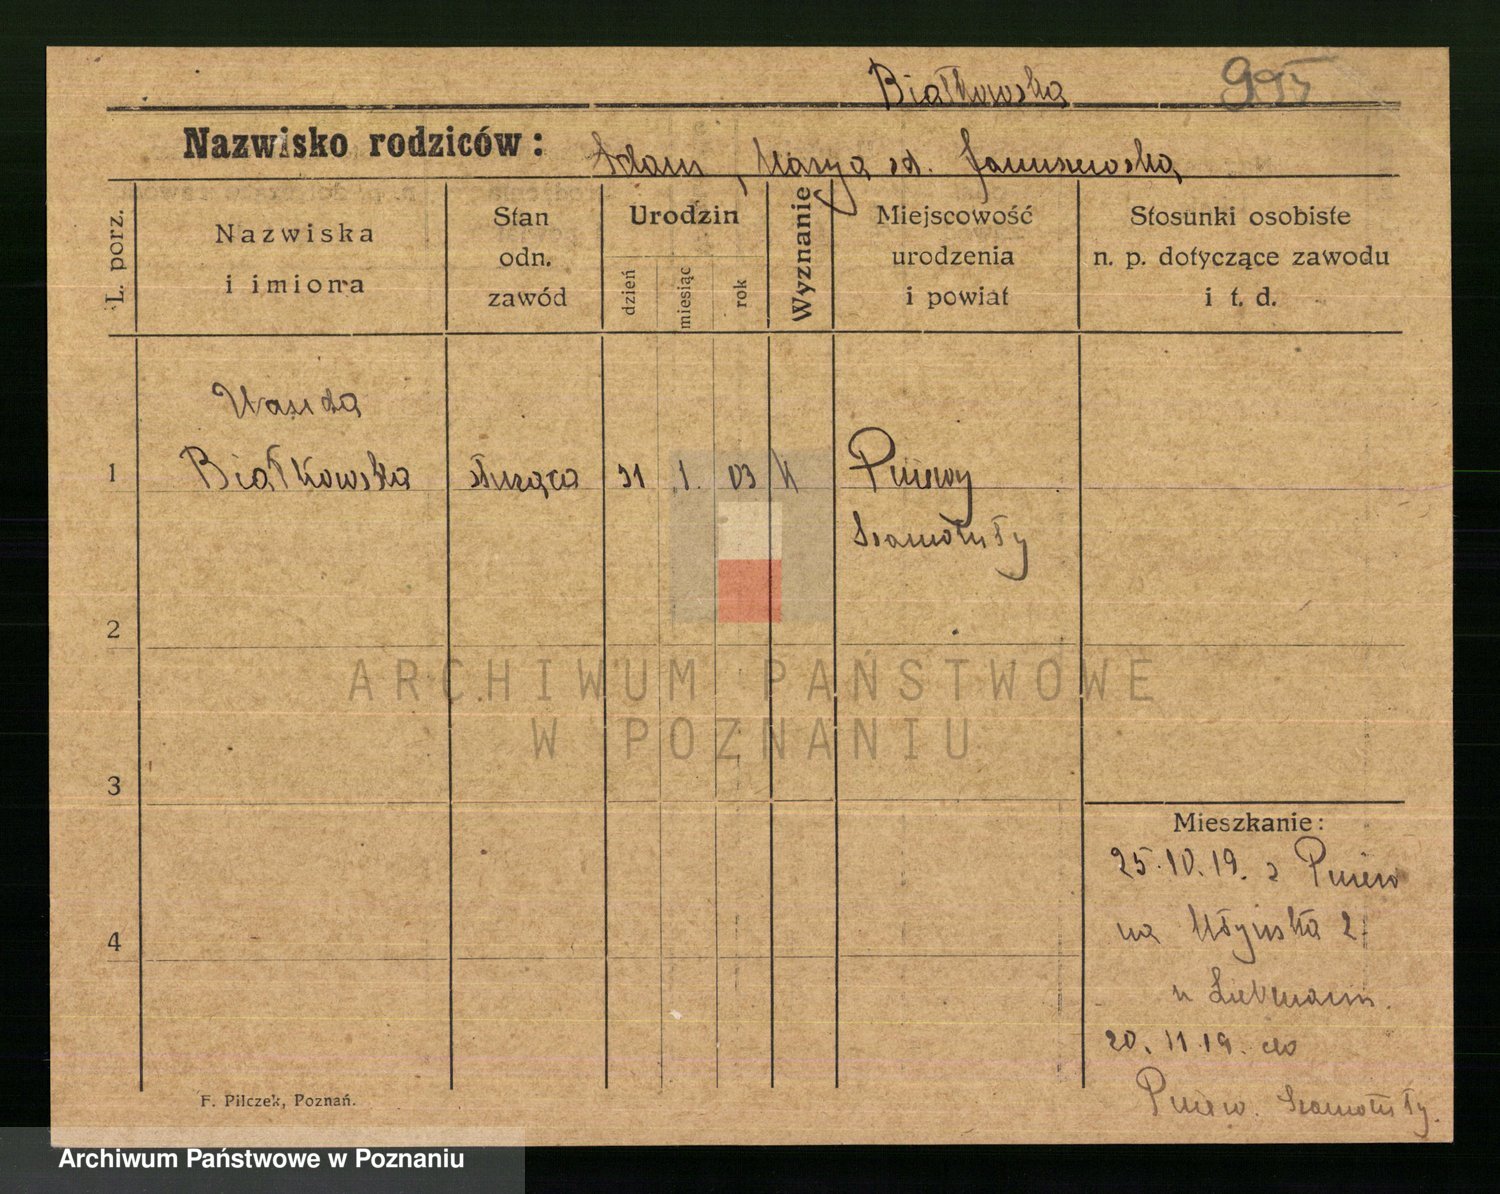 Białkowska 995
Nazwisko rodziców: Adam, Marya zd. Januszewska
L. porz.
Nazwiska
i imiona
Stan
odn.
zawód
Urodzin
dzień
miesiąc
rok
Wyznanie
Miejscowość
urodzenia
i powiat
Stosunki osobiste
n. p. dotyczące zawodu
i t. d.
Wanda
1 Białkowska służąca 31 1. 03 k Pniewy
Szamotuły
2
3
4
ARCHIWUM PAŃSTWOWE
W POZNANIU
Mieszkanie:
25.10.19. z Pniew
na Młyńska 2
u Liebmann.
20.11.19. do
Pniew. Szamotuły.
F. Pilczek, Poznań.
Archiwum Państwowe w Poznaniu